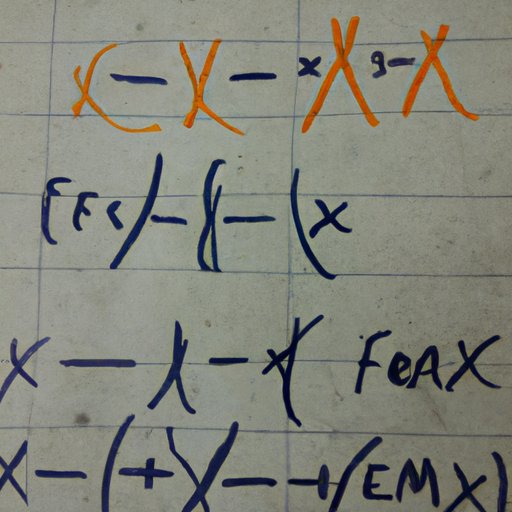 x - X - x X 9 - X
(FFs) - ( - (x
X - X - x( FeAX
X - (+X - +(EMX)